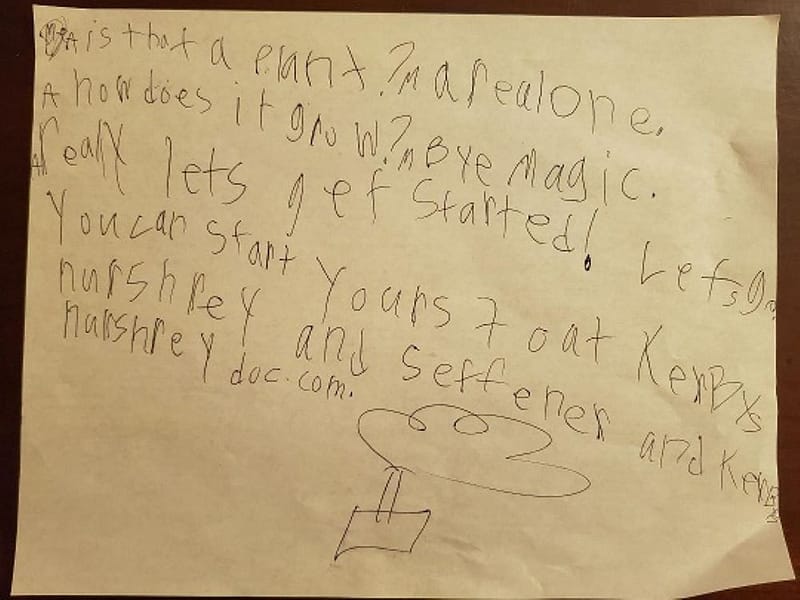 A is that a plant? M a real one.
A how does it grow? M Bye magic.
A really lets get started! Lets go
You can start yours 7 oat KerBys
nurshrey and seffener and KerBys
nurshrey doc.com.